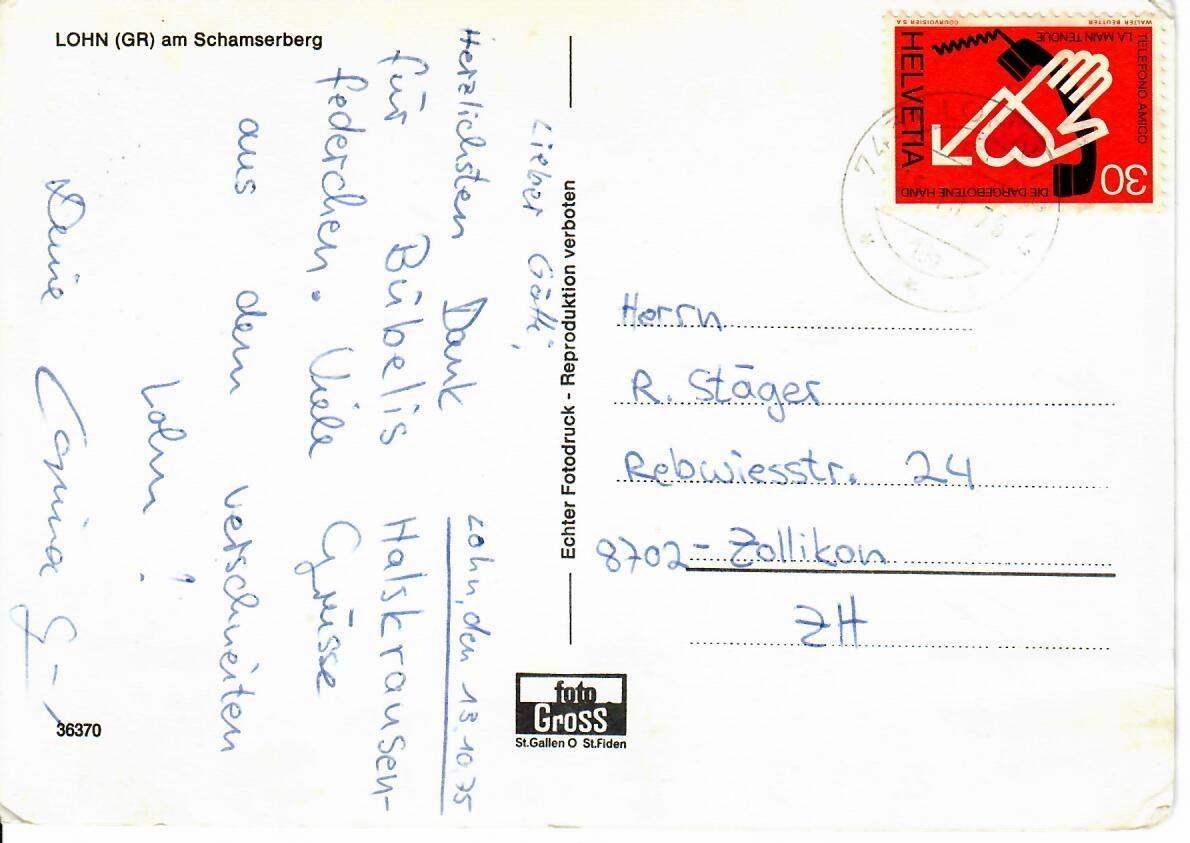 LOHN (GR) am Schamserberg
Lohn, den 13.10.75
Lieber Götti,
Herzlichsten Dank
für Bübelis Halskrausen-
federchen. Viele Grüsse
aus dem verschneiten
Lohn!
Deine
36370
Echter Fotodruck - Reproduktion verboten
foto
Gross
St.Gallen O St.Fiden
WALTER BEUTTER
COURVOISIER S.A.
TELEFONO AMICO
LA MAIN TENDUE
HELVETIA
DIE DARGEBOTENE HAND
30
Herrn
R. Stäger
Rebwiesstr. 24
8702 - Zollikon
ZH